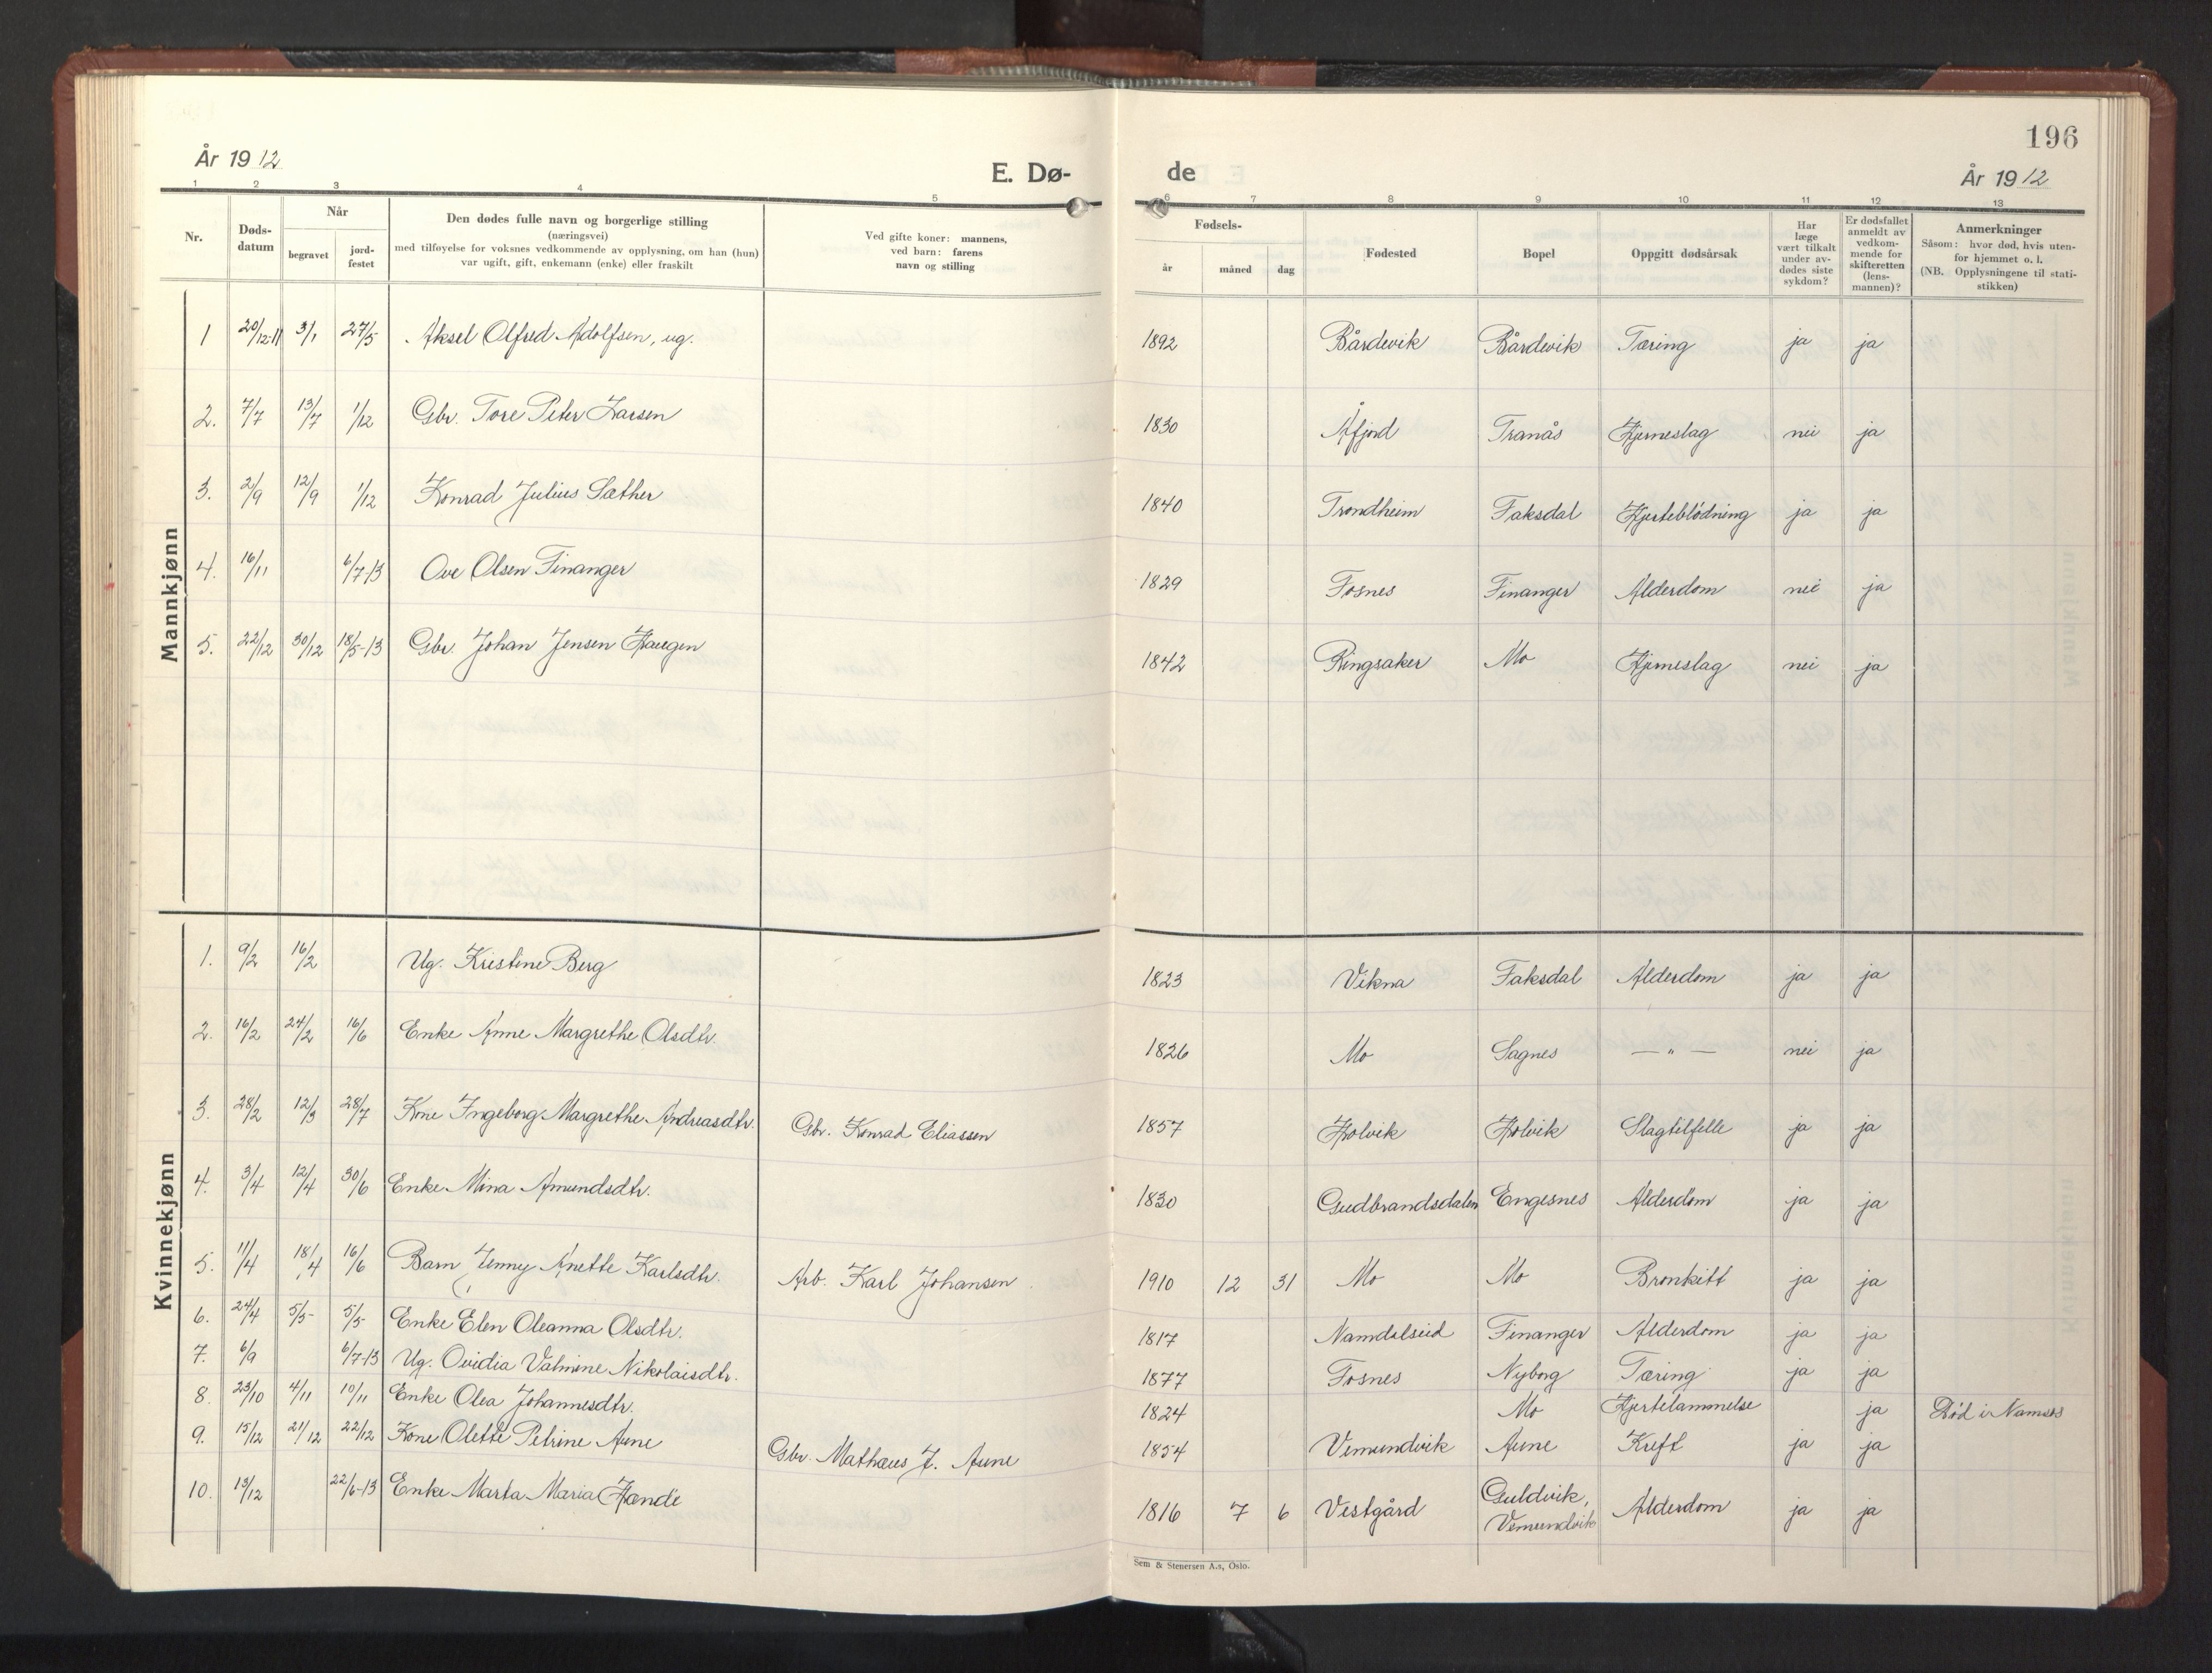 196
År 1912
E. Dø-
de
År 1912
1 2 3 4 5 6 7 8 9 10 11 12 13
Nr.
Døds-
datum
Når
begravet
jord-
festet
Den dødes fulle navn og borgerlige stilling
(næringsvei)
med tilføyelse for voksnes vedkommende av opplysning, om han (hun)
var ugift, gift, enkemann (enke) eller fraskilt
Ved gifte koner: mannens,
ved barn: farens
navn og stilling
Fødsels-
år måned dag
Fødested
Bopel
Oppgitt dødsårsak
Har
læge
vært tilkalt
under av-
dødes siste
sykdom?
Er dødsfallet
anmeldt av
vedkom-
mende for
skifteretten
(lens-
mannen)?
Anmerkninger
Såsom: hvor død, hvis uten-
for hjemmet o. l.
(NB. Opplysningene til stati-
stikken)
Mannkjønn
1 20/12-11 3/1 27/5 Aksel Olfred Adolfsen, ug. 1892 Bårdevik Bårdevik Tæring ja ja
2. 7/7 13/7 1/12 Gbr. Tore Peter Larsen 1830 Åfjord Tranås Hjerneslag nei ja
3. 2/9 12/9 1/12 Konrad Julius Sæther 1840 Trondheim Faksdal Hjerteblødning ja ja
4. 16/11 6/7-13 Ove Olsen Finanger 1829 Fosnes Finanger Alderdom nei ja
5. 22/12 30/12 18/5-13 Gbr. Johan Jensen Haugen 1842 Ringsaker Mo Hjerneslag nei ja
Kvinnekjønn
1. 9/2 16/2 Ug. Kristine Berg 1823 Vikna Faksdal Alderdom ja ja
2. 16/2 24/2 16/6 Enke Anne Margrethe Olsdtr. 1826 Mo Sagnes — " — nei ja
3. 28/2 12/3 28/7 Kone Ingeborg Margrethe Andreasdtr. Gbr. Konrad Eliassen 1857 Holvik Holvik Slagtilfelle ja ja
4. 3/4 12/4 30/6 Enke Mina Amundsdtr. 1830 Gudbrandsdalen Engesnes Alderdom ja ja
5. 11/4 18/4 16/6 Barn Jenny Anette Karlsdtr. Arb. Karl Johansen 1910 12 31 Mo Mo Bronkitt ja ja
6. 24/4 5/5 5/5 Enke Elen Oleanna Olsdtr. 1817 Namdalseid Finanger Alderdom ja ja
7. 6/9 6/7-13 Ug. Ovidia Valmine Nikolaisdtr. 1877 Fosnes Nyborg Tæring ja ja
8. 23/10 4/11 10/11 Enke Olea Johannesdtr. 1824 Mo Hjertelammelse ja Død i Namsos
9. 15/12 21/12 22/12 Kone Olette Petrine Aune Gbr. Mathæus J. Aune 1854 Vemundvik Aune Kreft ja ja
10. 13/12 22/6-13 Enke Marta Maria Hande 1816 7 6 Vestgård Guldvik,
Vemundvik Alderdom ja ja
Sem & Stenersen A.s, Oslo.